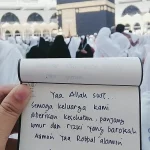 Yaa Allah swt,
semoga keluarga kami
diberikan kesehatan, panjang
umur dan rizki yang barokah
Aamiin Yaa Robbal alamin